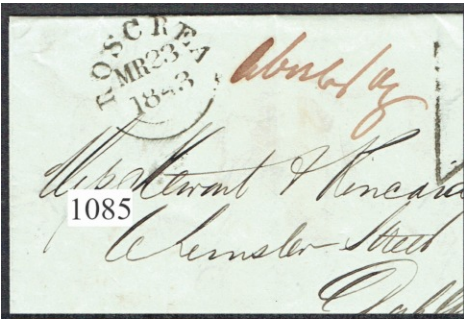 ROSCREA
MR 23
1843
Messrs Stewart & Kincaid
1085
Leinster Street